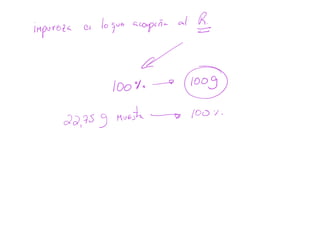 impureza es lo que acompaña al R.
100% → 100g
22,75 g muestra → 100%